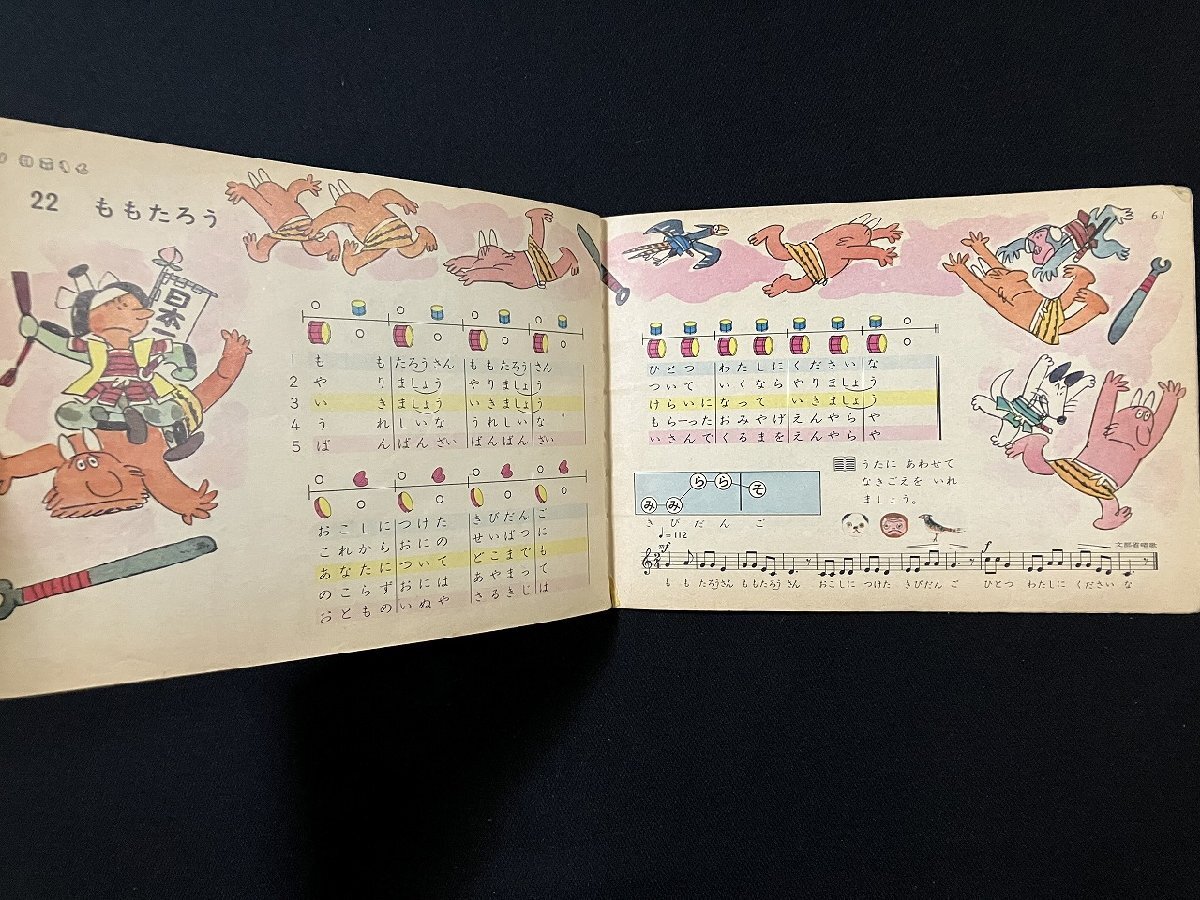 22 ももたろう
日本一
1 も も たろうさん ももたろうさん
2 や り ましょう やりましょう
3 い き ましょう いきましょう
4 う れ しいな うれしいな
5 ば ん ばんざい ばんばんざい
おこしにつけた きびだんご
これからおにの せいばつに
あなたについて どこまでも
のこらずおには あやまって
おとものいぬや さるきじは
61
ひとつ わたしに ください な
ついて いくなら やりましょう
けらいに なって いきましょう
もらーった おみやげ えんやら や
いさんで くるまを えんやら や
うたに あわせて
なきごえを いれ
ましょう。
ら ら そ
み み
き び だ ん ご
♩=112
文部省唱歌
mf
f
も も たろうさん ももたろう さん おこしに つけた きびだん ご ひとつ わたしに ください な